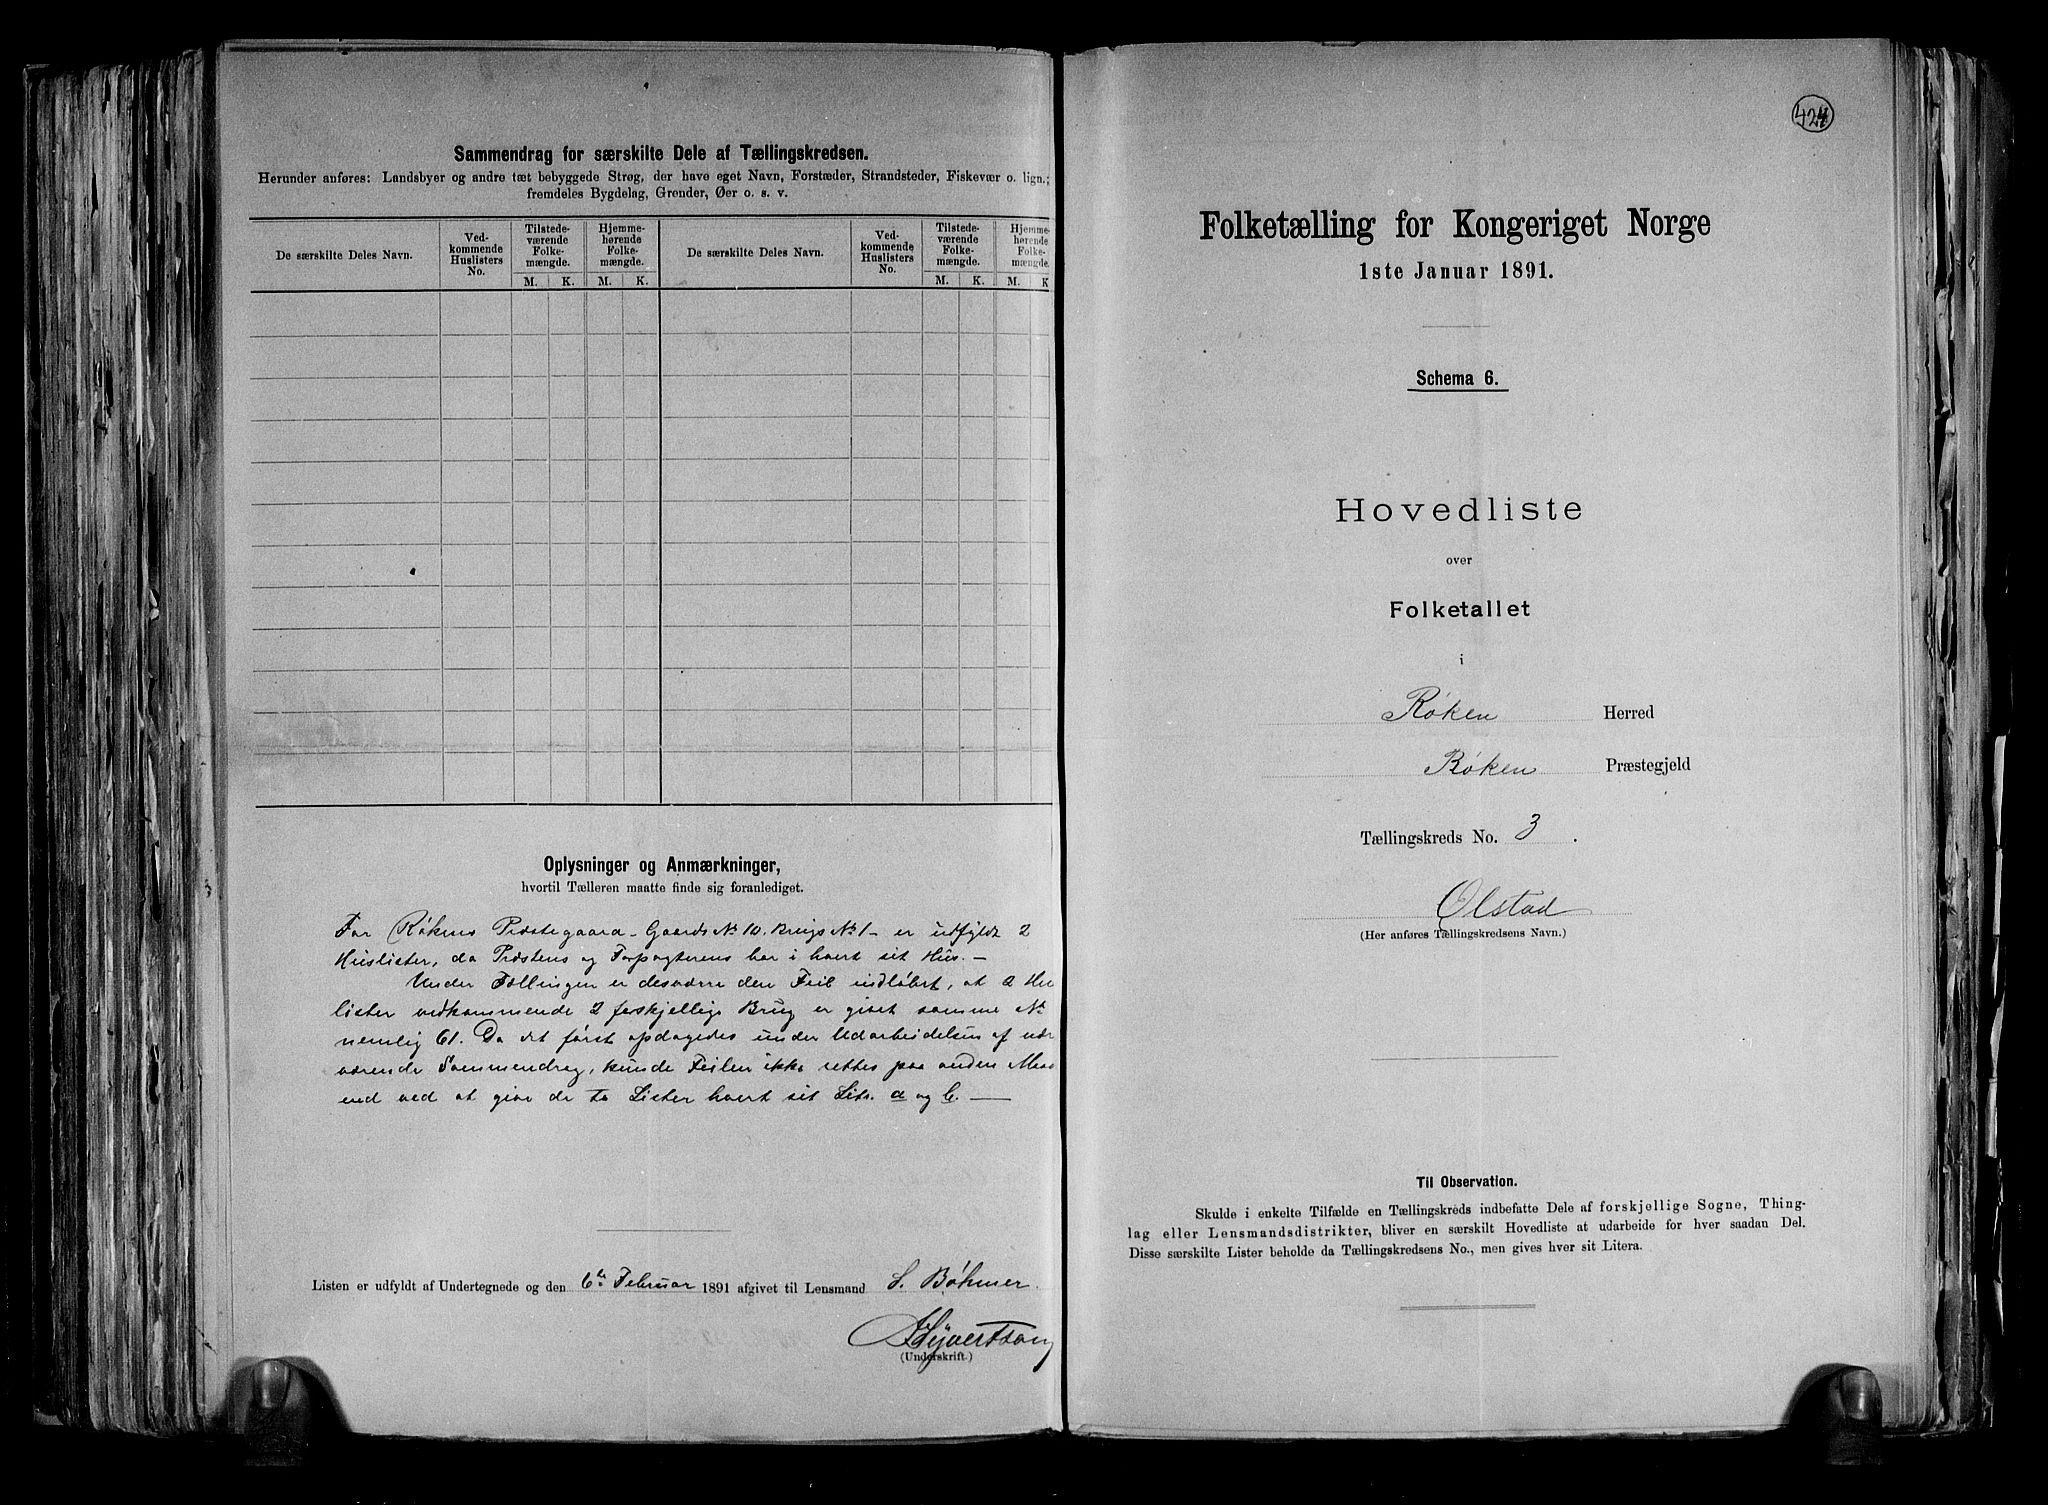 Sammendrag for særskilte Dele af Tællingskredsen.
Herunder anføres: Landsbyer og andre tæt bebyggede Strøg, der have eget Navn, Forstæder, Strandsteder, Fiskevær o. lign.;
fremdeles Bygdelag, Grender, Øer o. s. v.
De særskilte Deles Navn.
Ved-
kommende
Huslisters
No.
Tilstede-
værende
Folke-
mængde.
Hjemme-
hørende
Folke-
mængde.
De særskilte Deles Navn.
Ved-
kommende
Huslisters
No.
Tilstede-
værende
Folke-
mængde.
Hjemme-
hørende
Folke-
mængde.
M. K. M. K. M. K. M. K
Oplysninger og Anmærkninger,
hvortil Tælleren maatte finde sig foranlediget.
For Røkens Præstegaard - Gaards No 10. Brugs No 1 - er udfyldt 2
Huslister, da Præstens og Forpagterens bor i hvert sit Hus. -
Under Tællingen er desværre den Feil indløbet, at 2 Hu
lister vedkommende 2 forskjellige Brug er givet samme No
nemlig 61. Da det først opdagedes under Udarbeidelsen af nær
værende Sammendrag, kunde Feilen ikke rettes paa anden Maa
end ved at give de to Lister hvert sit Litr. a og b. —
Listen er udfyldt af Undertegnede og den 6te Februar 1891 afgivet til Lensmand S. Bøhmer
(Underskrift.)
424
Folketælling for Kongeriget Norge
1ste Januar 1891.
Schema 6.
Hovedliste
over
Folketallet
i
Røken Herred
Røken Præstegjeld
Tællingskreds No. 3.
Olstad
(Her anføres Tællingskredsens Navn.)
Til Observation.
Skulde i enkelte Tilfælde en Tællingskreds indbefatte Dele af forskjellige Sogne, Thing-
lag eller Lensmandsdistrikter, bliver en særskilt Hovedliste at udarbeide for hver saadan Del.
Disse særskilte Lister beholde da Tællingskredsens No., men gives hver sit Litera.